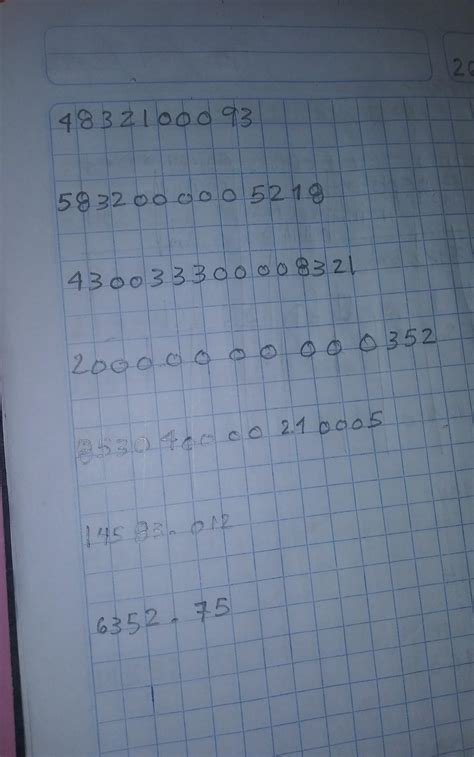 20
4832100093
5832000005218
430033300008321
200000000000352
853040000210005
14583.012
6352.75